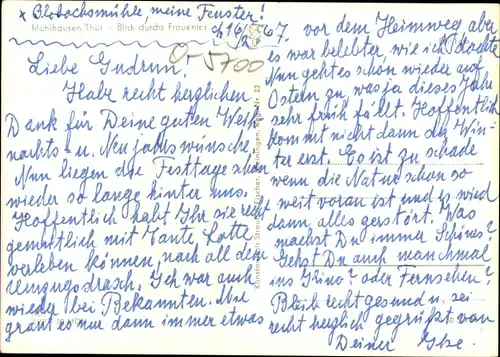 x Globachsmühle, meine Fenster!
Mühlhausen Thür. - Blick durchs Frauentor
d. 16/2. 67.
0-5700
Liebe Gudrun!
Habe recht herzlichen
Dank für Deine guten Weih-
nachts- u. Neujahrswünsche,
Nun liegen die Festtage schon
wieder so lange hinter uns.
Hoffentlich habt Ihr sie recht
gemütlich mit Tante Lotte
verleben können, nach all dem
Umzugsdrasch. Ich war auch
wieder bei Bekannten. Mir
graut es nur dann immer etwas
vor dem Heimweg aber
es war belebter, wie ich dachte
Nun geht es schon wieder auf
Ostern zu, was ja dieses Jahr
sehr früh fällt. Hoffentlich
kommt nicht dann der Win-
ter erst. Es ist zu schade
wenn die Natur schon so
weit voran ist und es wird
dann alles gerstört. Was
machst Du immer Schönes?
Gehst Du auch manchmal
ins Kino? oder Fernsehen?
Bleib recht gesund u. sei
recht herzlich gegrüßt von
Deiner Ilse.